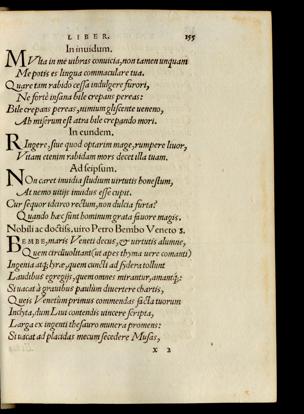 LIBER. 155
In inuidum.
MVlta in me uibras conuicia, non tamen unquam
Me potis es lingua commaculare tua.
Quare tam rabido cessa indulgere furori,
Ne fortè insana bile crepans pereas:
Bile crepans pereas, nimium gliscente ueneno,
Ah miserum est atra bile crepando mori.
In eundem.
RIngere, siue quod optarim mage, rumpere liuor,
Vitam etenim rabidam mors decet illa tuam.
Ad seipsum.
NOn caret inuidia studium uirtutis honestum,
At nemo uitijs inuidus esse cupit.
Cur sequor idcirco rectum, non dulcia furta?
Quando hæc sunt hominum grata fauore magis.
Nobili ac doctiss. uiro Petro Bembo Veneto s.
BEMBE, maris Veneti decus, & uirtutis alumne,
Quem circũuolitant (ut apes thyma uere comanti)
Ingenia atq; lyræ, quem cuncti ad sydera tollunt
Laudibus egregijs, quem omnes mirantur, amantq;:
Si uacat à grauibus paulùm diuertere chartis,
Queis Venetûm primus commendas facta tuorum
Inclyta, dum Liui contendis uincere scripta,
Larga ex ingenti thesauro munera promens:
Si uacat ad placidas mecum secedere Musas,
X 2